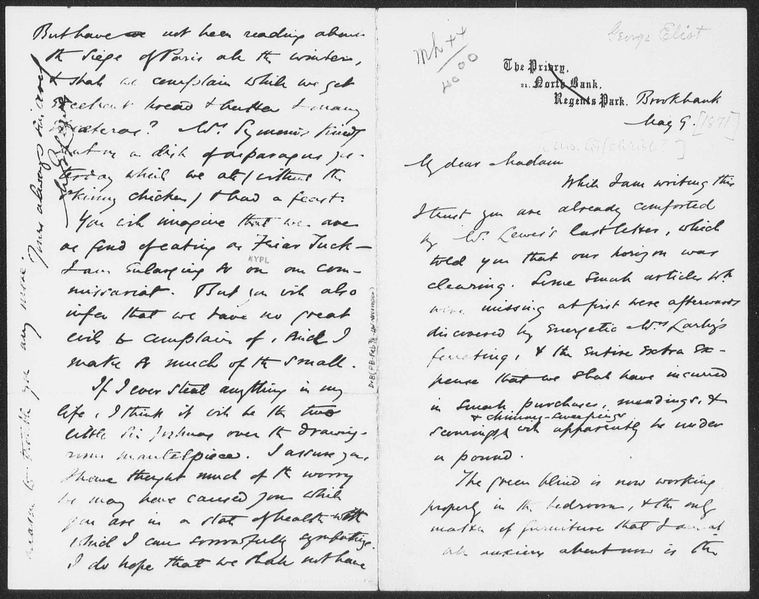 George Eliot
The Priory,
21. North Bank,
Regents Park. Brookbank
May 9. [1871]
My dear Madam
While I am writing this
I trust you are already comforted
by Mr. Lewes's last letter, which
told you that our horizon was
clearing. Some small articles wh.
were missing at first were afterwards
discovered by energetic Mrs Larby's
ferreting, & the entire extra ex-
pense that we shall have incurred
in small purchases, mendings, &
& chimney-sweepings
scourings will apparently be under
a pound.
The green blind is now working
properly in the bedroom, & the only
matter of furniture that I am at
all anxiety about now is the
But have not been reading about
the Siege of Paris all the winter,
& shall we complain while we get
excellent bread & butter & many
etceteras? Mrs Symmons kindly
sent us a dish of asparagus yes-
terday which we ate (without the
skinny chicken) & had a feast.
You will imagine that we are
as fond of eating as Friar Tuck—
I am enlarging so on our com-
missariat. But you will also
infer that we have no great
evils to complain of, since I
make so much of the small.
If I ever steal anything in my
life, I think it will be the two
little Sir Joshuas over the drawing-
room mantelpiece. I assure you
I have thought much of the worry
we may have caused you while
you are in a state of health with
which I can sorrowfully sympathize.
I do hope that we shall not have
reason to trouble you any more.
Yours always sincerely
NYPL